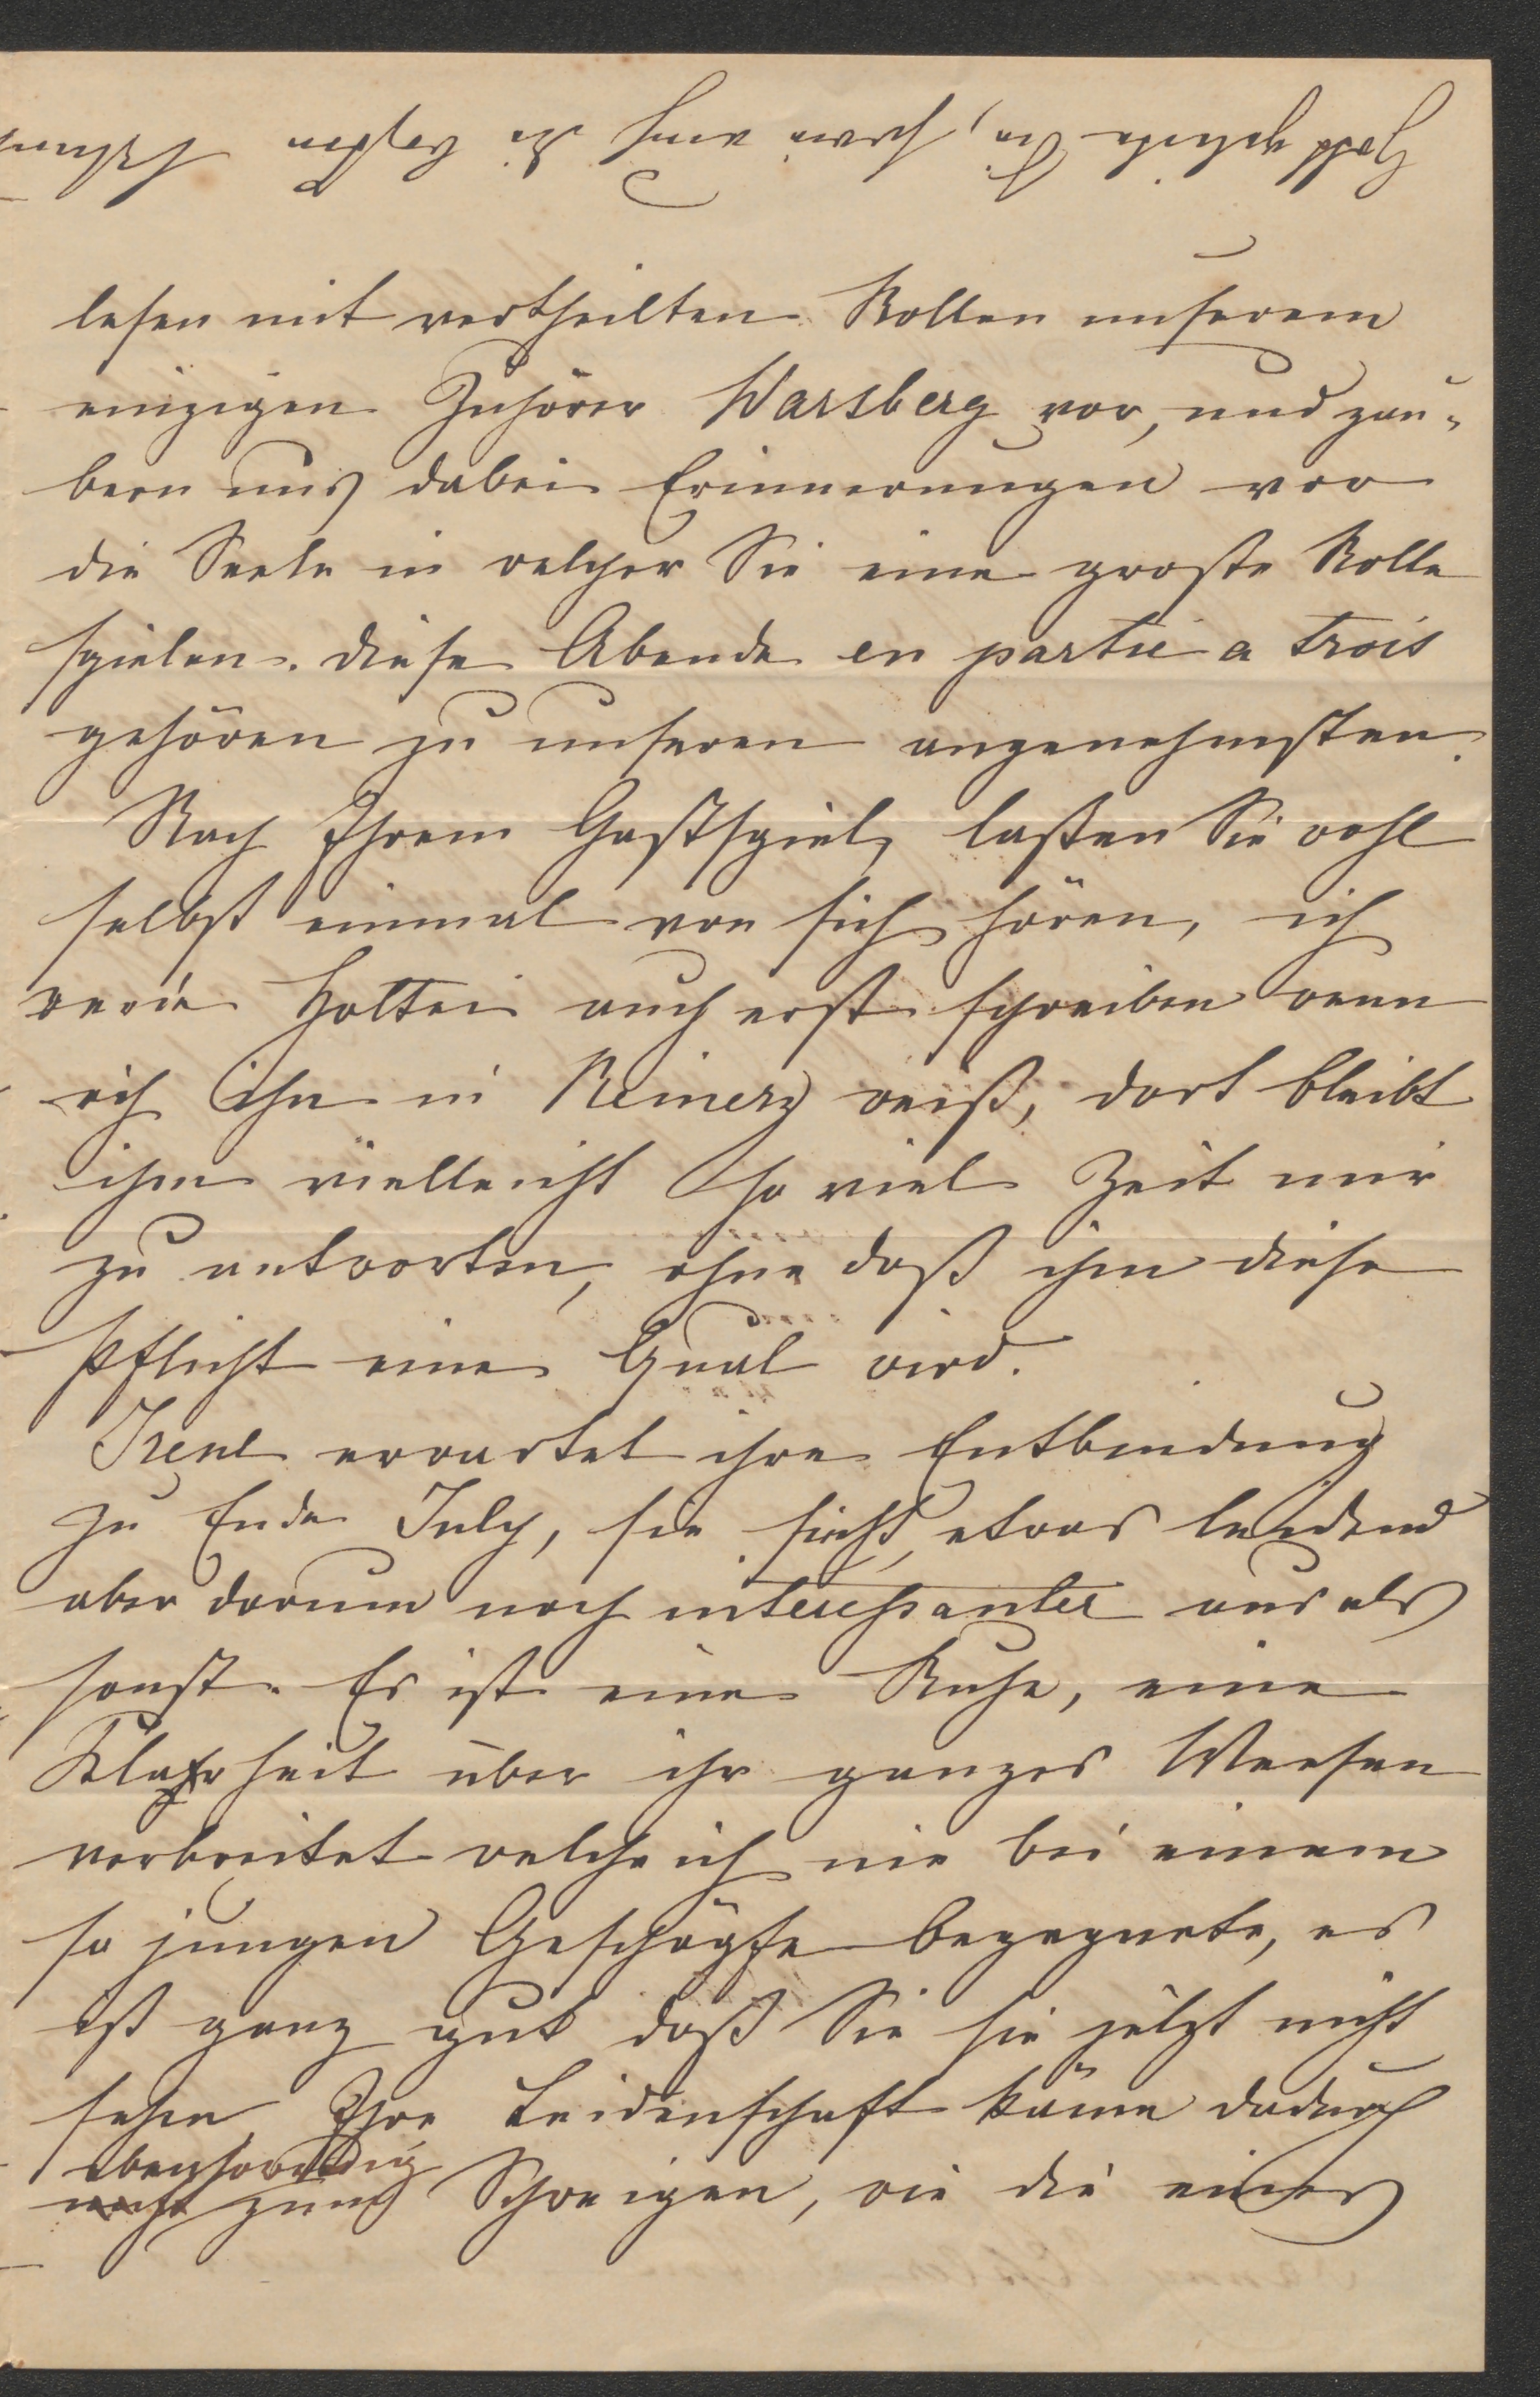 lesen mit vertheilten Rollen unserem
einzigen Zuhörer Warsberg vor, und zau-
bern uns dabei Erinnerungen vor
die Seele in welcher Sie eine große Rolle
spielen. Diese Abende en partie a trois
gehören zu unseren angenehmsten.
Nach Ihrem Gastspiel, laßen Sie wohl
selbst einmal von sich hören, ich
werde Holtei auch erst schreiben wenn
ich ihn in Reinerz weiß, dort bleibt
ihm vielleicht so viel Zeit mir
zu antworten, ohne daß ihm diese
Pflicht eine Qual wird.
Irene erwartet ihre Entbindung
zu Ende July, sie sieht, etwas leidend
aber darum noch interessanter aus als
sonst. Es ist eine Ruhe, eine
Klarheit über ihr ganzes Weesen
verbreitet welche ich nie bei einem
so jungen Geschöpfe begegnete, es
ist ganz gut daß Sie sie jetzt nicht
sehen, Ihre Leidenschaft käme dadurch
ebensowenig
nicht zum Schweigen, wie die eines
Gott Sie, auch die